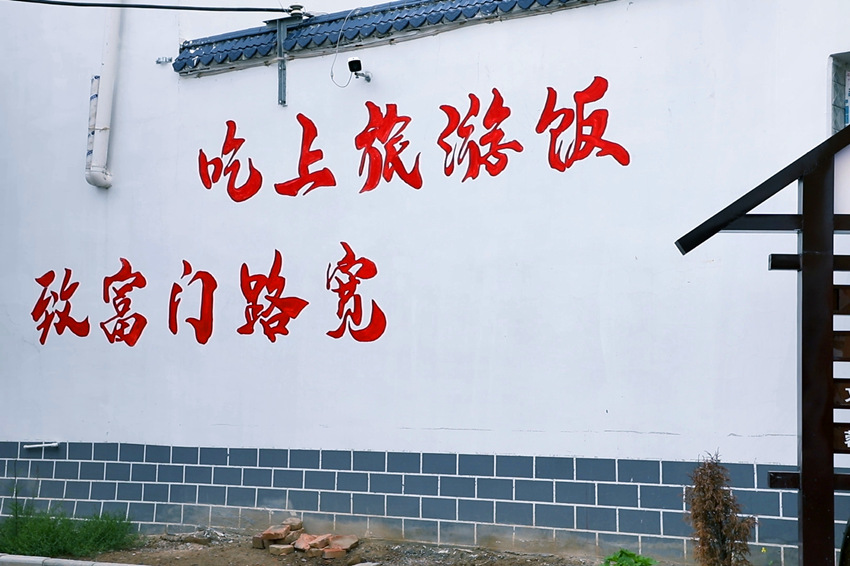 吃上旅游饭
致富门路宽